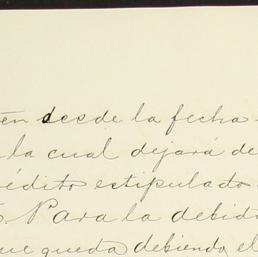 én desde la fecha
la cual dejará de
rédito estipulado
Para la debida
que queda debiendo el